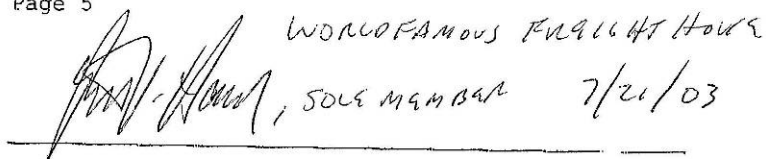 Page 5
WORLD FAMOUS FREIGHT HOUSE
, SOLE MEMBER 7/21/03